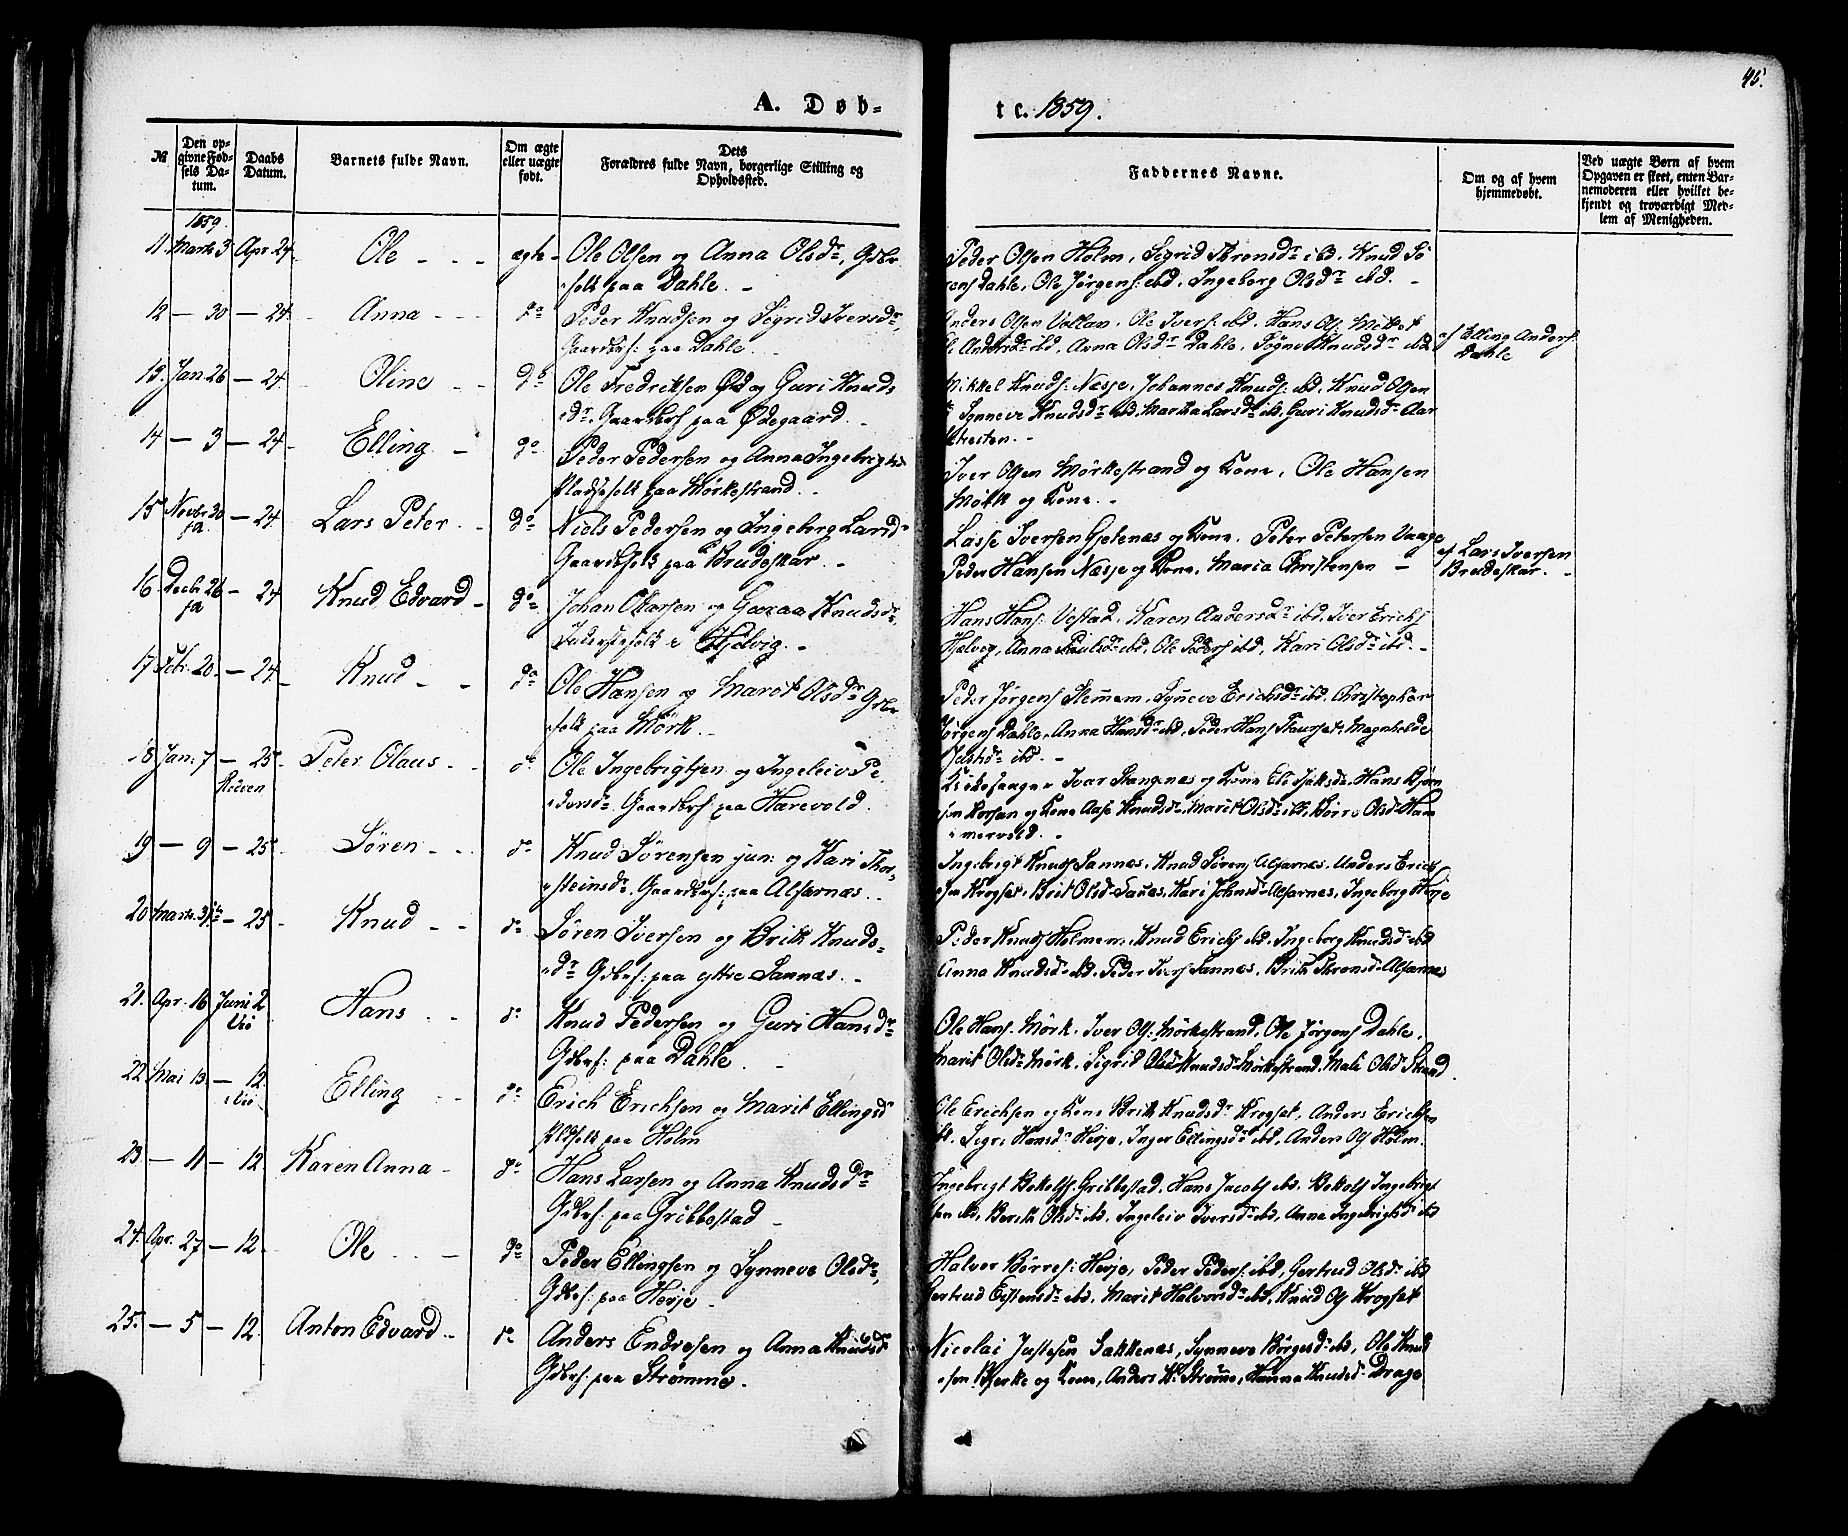 46.
A. Døb-
te. 1859.
№
Den opgivne Fødsels Datum.
Daabs Datum.
Barnets fulde Navn.
Om ægte eller uægte født.
Dets Forældres fulde Navn, borgerlige Stilling og Opholdssted.
Faddernes Navne.
Om og af hvem hjemmedøbt.
Ved uægte Børn af hvem Opgaven er skeet, enten Barnemoderen eller hvilket bekjendt og troværdigt Medlem af Menigheden.
1859.
11. Marts 3 Apr. 24 Ole ægte Ole Olsen og Anna Olsdr, Gdbr
folk paa Dahle.
Peder Olsen Holm, Sigrid ibd. Knud Sö
rens Dahle, Ole Jørgens: ibd. Ingeborg Olsdr ibd.
12 — 30 — 24. Anna do Peder Knudsen og Sigrid Iversdr,
Gaardbrf: paa Dahle.
Anders Olsen Vollan, Ole Ivers: ibd. Hans Ols:
Andersdr ibd, Anna Olsdr Dahle, Knudsdr ibd
af Elling Anders:
Dahle
13. Jan. 26 — 24 Oline do Ole Fredriksen og Guri Knuds
dr, Gaardbrf paa Ødegaard.
Mikkel Knuds: Næsje, Johannes Knuds: ibd, Knud Olsen
Synneve Knudsdr ibd, Martha Larsdr ib, Guri Knudsdr
14 — 3 — 24 Elling do Peder Pedersen og Anna Ingebrigtsd
Pladsfolk paa Mörkestrand.
Iver Olsen Mörkestrand og Kone, Ole Hansen
Mörk og Kone.
15 Novbr 30 — 24 Lars Peter do Niels Pedersen og Ingeborg Larsd
Gaardbfolk paa Brudeskar.
Lasse Iversen Gjelenæs og Kone. Peter Petersen Vaage
Peder Hansen Næsje og Kone, Maria Christensen
af Lars Iversen
Bredeskar.
16 Decbr 26 — 24 Knud Edvard do Johan og Knudsdr,
Inderstfolk i Hjelvig.
Hans Hans: Vestad, Karen Andersdr ibd, Iver Erichs
Hjelvig, Anna Paulsdr ibd, Ole Peders ibd, Kari Olsdr ibd.
17 Febr. 20 — 24 Knud do Ole Hansen og Marit Olsdr Gdbr
folk paa Mörk.
Peder Jørgens Synneve Erichsdr ibd. Christopher
Jørgens Dahle, Anna Hansdr ibd, Peder Hans Magnhilde
ibd.
18 Jan: 7 — 25 Peter Olaus do Ole Ingebrigtsen og Ingeleiv Pe
dersdr. Gaardbrf paa Harevold.
Röven
Kirkesanger Ivar Stangenæs og Kone Hans Bjørn
sen og Kone Aase Knudsdr. Marit Olsdr ibd, Olsdr Ham
mervold.
19 — 9 — 25 Søren do Knud Sørensen jun: og Kari Thor
steinsdr, Gaardbrf: paa Alfarnæs.
Ingebrigt Knuds Sannæs, Knud Sørens Alfarnæs, Anders Erich
sen Krogset, Brit Olsdr Sannæs, Kari Johnsdr Alfarnæs, Ingeborg
20 Marts 31 — 25 Knud do Søren Iversen og Brith Knuds
dr Gdbrf: paa yttre Sannæs.
Peder Knuds Holmem, Knud Erichs ibd, Ingeborg Knudsdr ibd
Anna Knudsdr ibd. Peder Ivers Sannæs, Brith Alfarnæs
21. Apr. 16 Juni 2 Hans do Knud Pedersen og Guri Hansdr
Gdbrf: paa Dahle
Vëö
Ole Hans: Mörk. Iver Ols: Mörkestrand, Ole Jørgens Dahle,
Marit Olsdr Mörk. Sigrid Knudsdr Mörkestrand, Mali Olsdr Strand.
22 Mai 13 — 12 Elling do Erich Erichsen og Marit Ellingsdr
Pldsfolk paa Holm
Vëö
Ole Erichsen og Kone Brith Knudsdr Krogset, Anders Erichsen
Hansdr Herje, Inger Ellingsdr ibd, Anders Ols Holm.
23 — 11 — 12 Karen Anna do Hans Larsen og Anna Knudsdr
Gdbrf: paa Gribbestad
Ingebrigt Gribbestad, Hans Jacobs ibd. Ingebrigt
sen ibd, Berith Olsdr ibd, Ingeleiv Iversdr ibd, Anna Ingebrigtsdr ibd
24. Apr. 27 — 12 Ole do Peder Ellingsen og Synneve Olsdr,
Gdbrf: paa Herje
Halvor Børres: Herje, Peder Peders: ibd, Gertrud Olsdr ibd
Gertrud ibd, Marit Halvorsdr ibd, Knud Ols Krogset
25. — 5 — 12 Anton Edvard do Anders Endresen og Anna Knudsdr
Gdbrf: paa Strømme.
Nicolai Justesen Sekkenæs, Synneve Børgesdr ibd, Ole Knud
sen og Kone, Anders K: Strøme, Hanna Knudsdr Drage